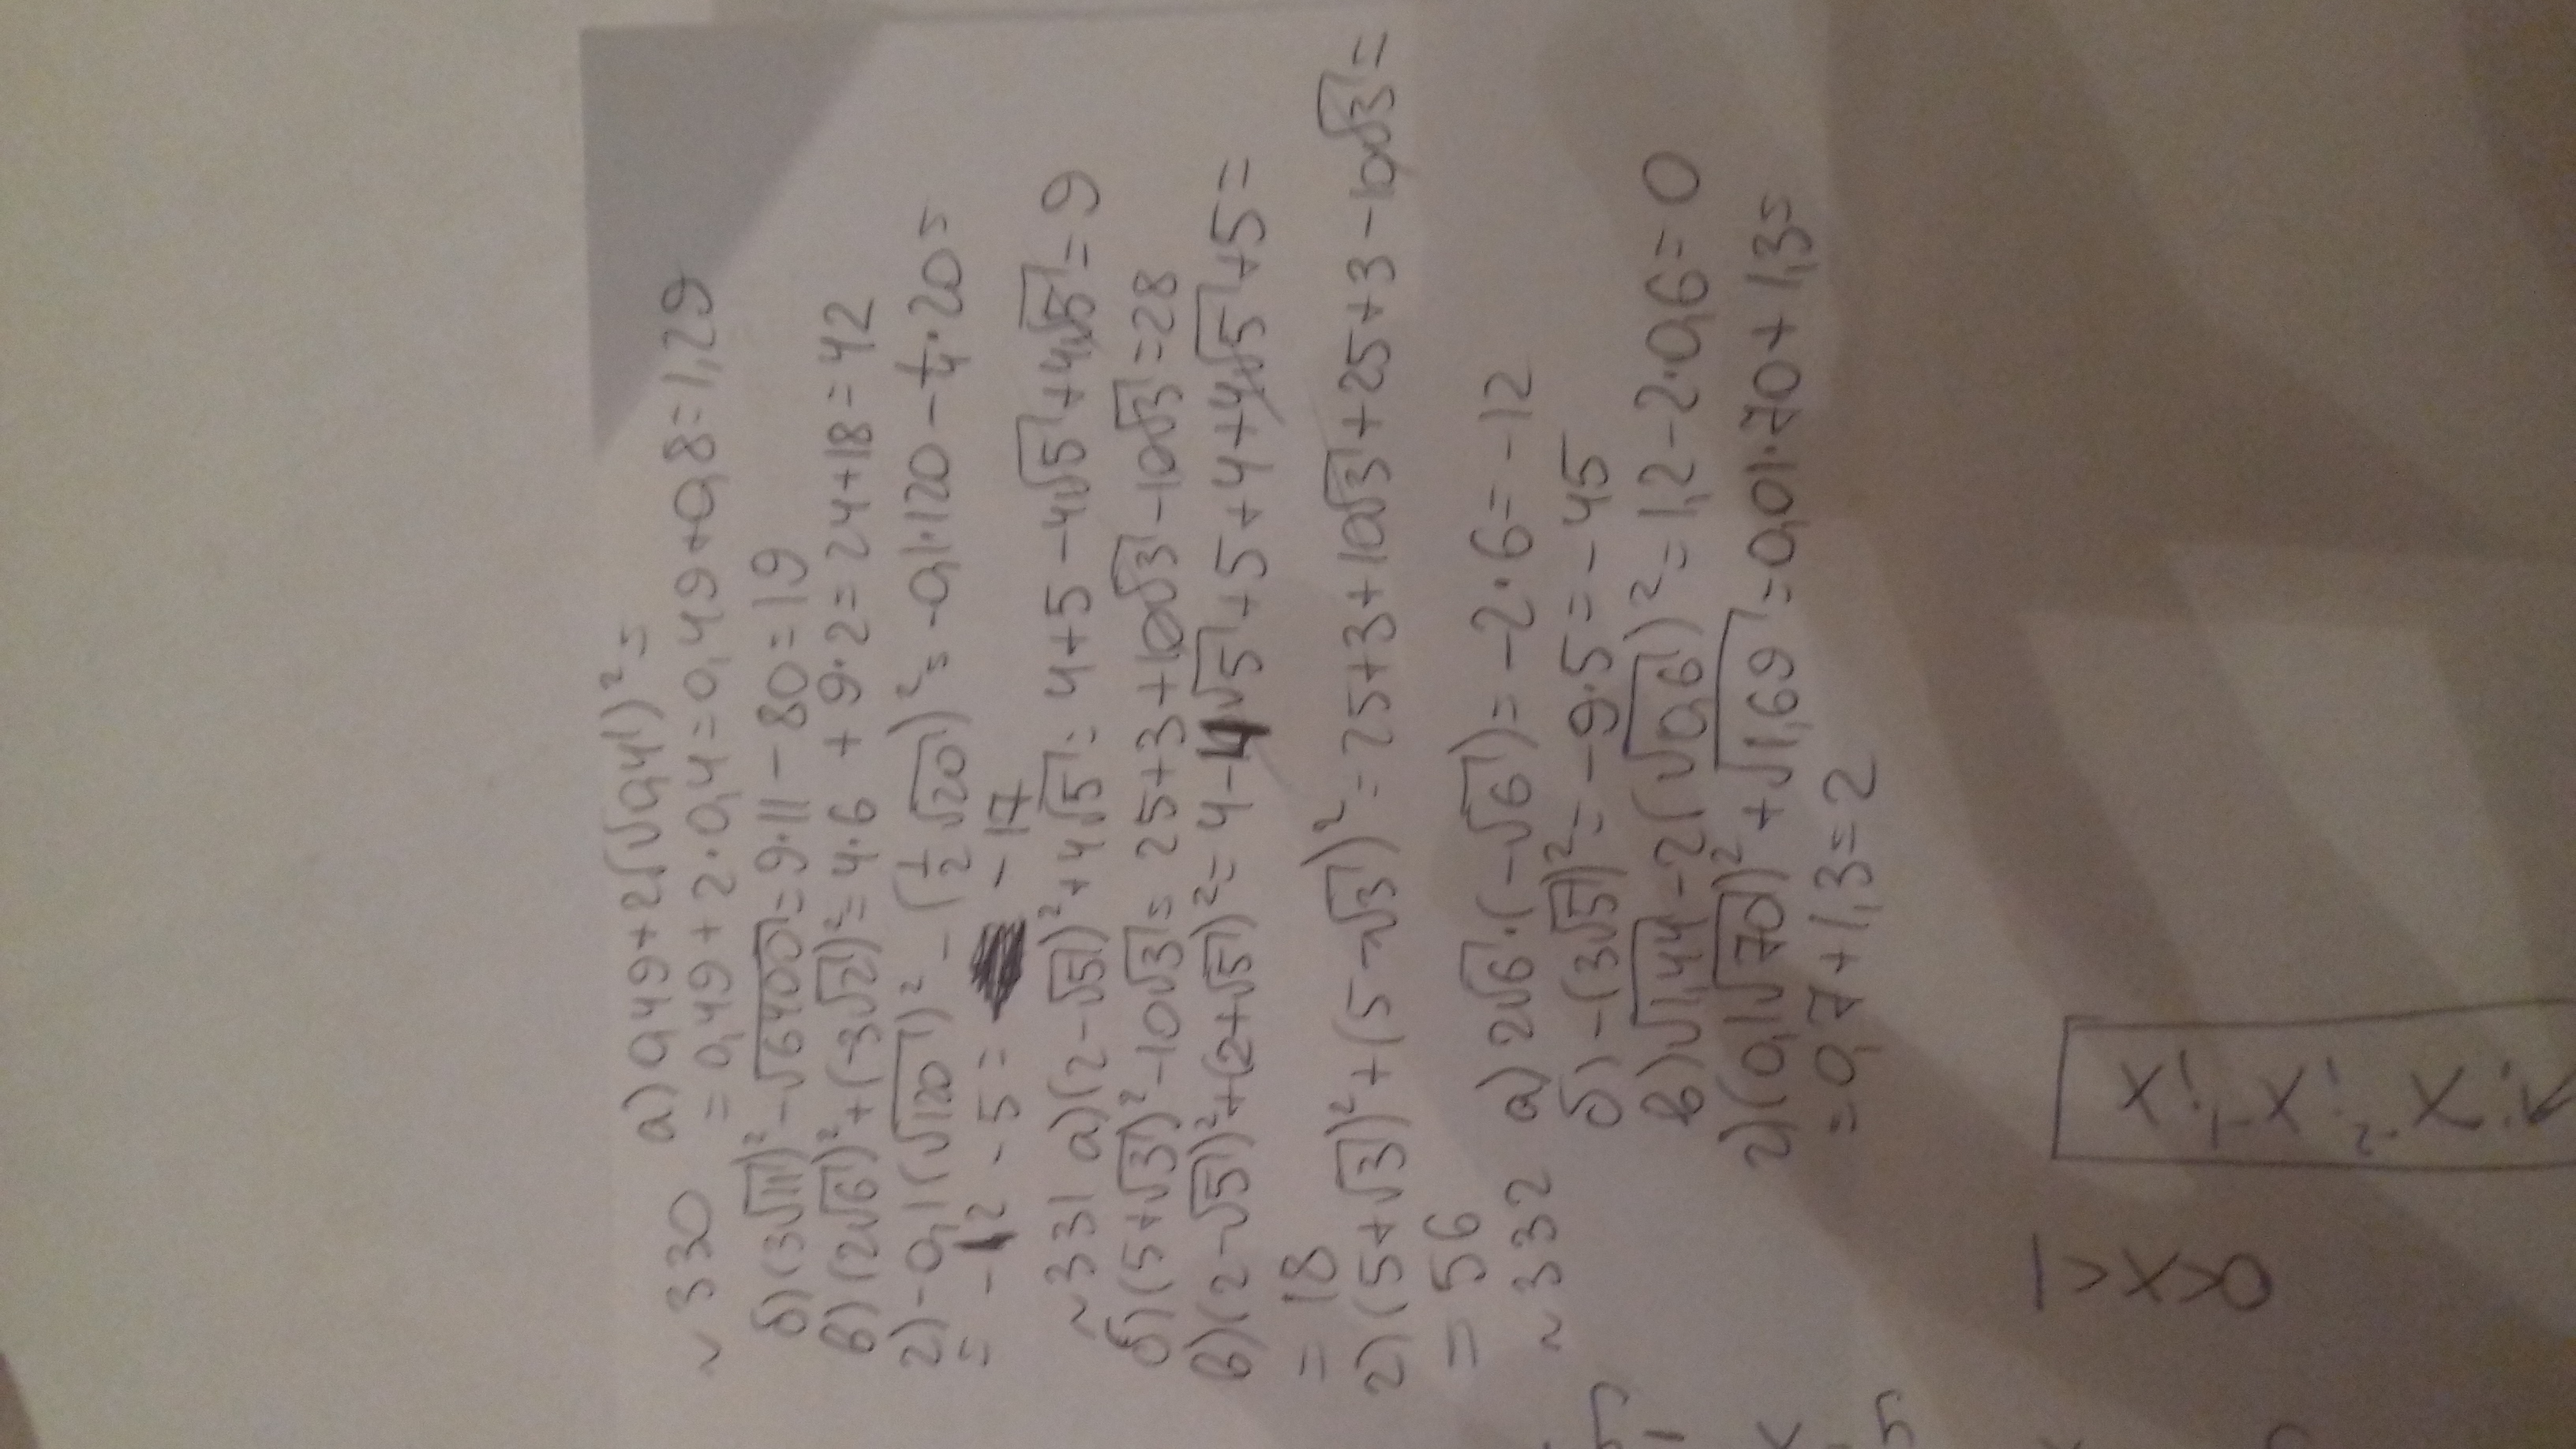 ~ 330 а) 0,49+2(√0,4)²=
= 0,49 + 2·0,4 = 0,49+0,8=1,29
б) (3√11)² - √6400 = 9·11 - 80 = 19
в) (2√6)²+(-3√2)²= 4·6 + 9·2 = 24+18 = 42
г) -0,1(√120)² - (½√20)²= -0,1·120 - ¼·20=
= -12 - 5 = -17
~ 331 а) (2-√5)²+4√5 = 4+5-4√5+4√5 = 9
б) (5+√3)²-10√3 = 25+3+10√3-10√3=28
в) (2-√5)²+(2+√5)²= 4-4√5+5+4+4√5+5=
= 18
г) (5+√3)²+(5-√3)²= 25+3+10√3+25+3-10√3=
= 56
~ 332 а) 2√6·(-√6)= -2·6= -12
б) -(3√5)²= -9·5 = -45
в) √1,44-2(√0,6)²= 1,2-2·0,6= 0
г) (0,1√70)²+√1,69 = 0,01·70+1,3=
= 0,7+1,3=2
1>x>0